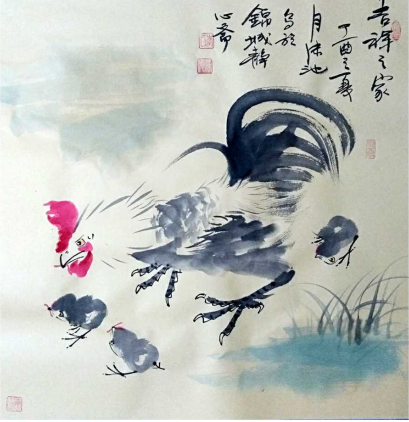 吉祥之家
丁酉之夏
月沐池
写于
锦城静
心斋